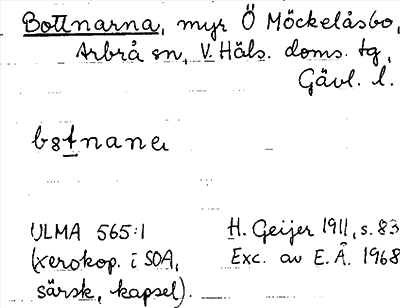 Bottnarna, myr Ö Möckelåsbo,
Arbrå sn, V. Häls. doms. tg,
Gävl. l.
b8tnanɐ
ULMA 565:1 H. Geijer 1911, s. 83
(xerokop. i SOA, Exc. av E. Å. 1968
särsk, kapsel).